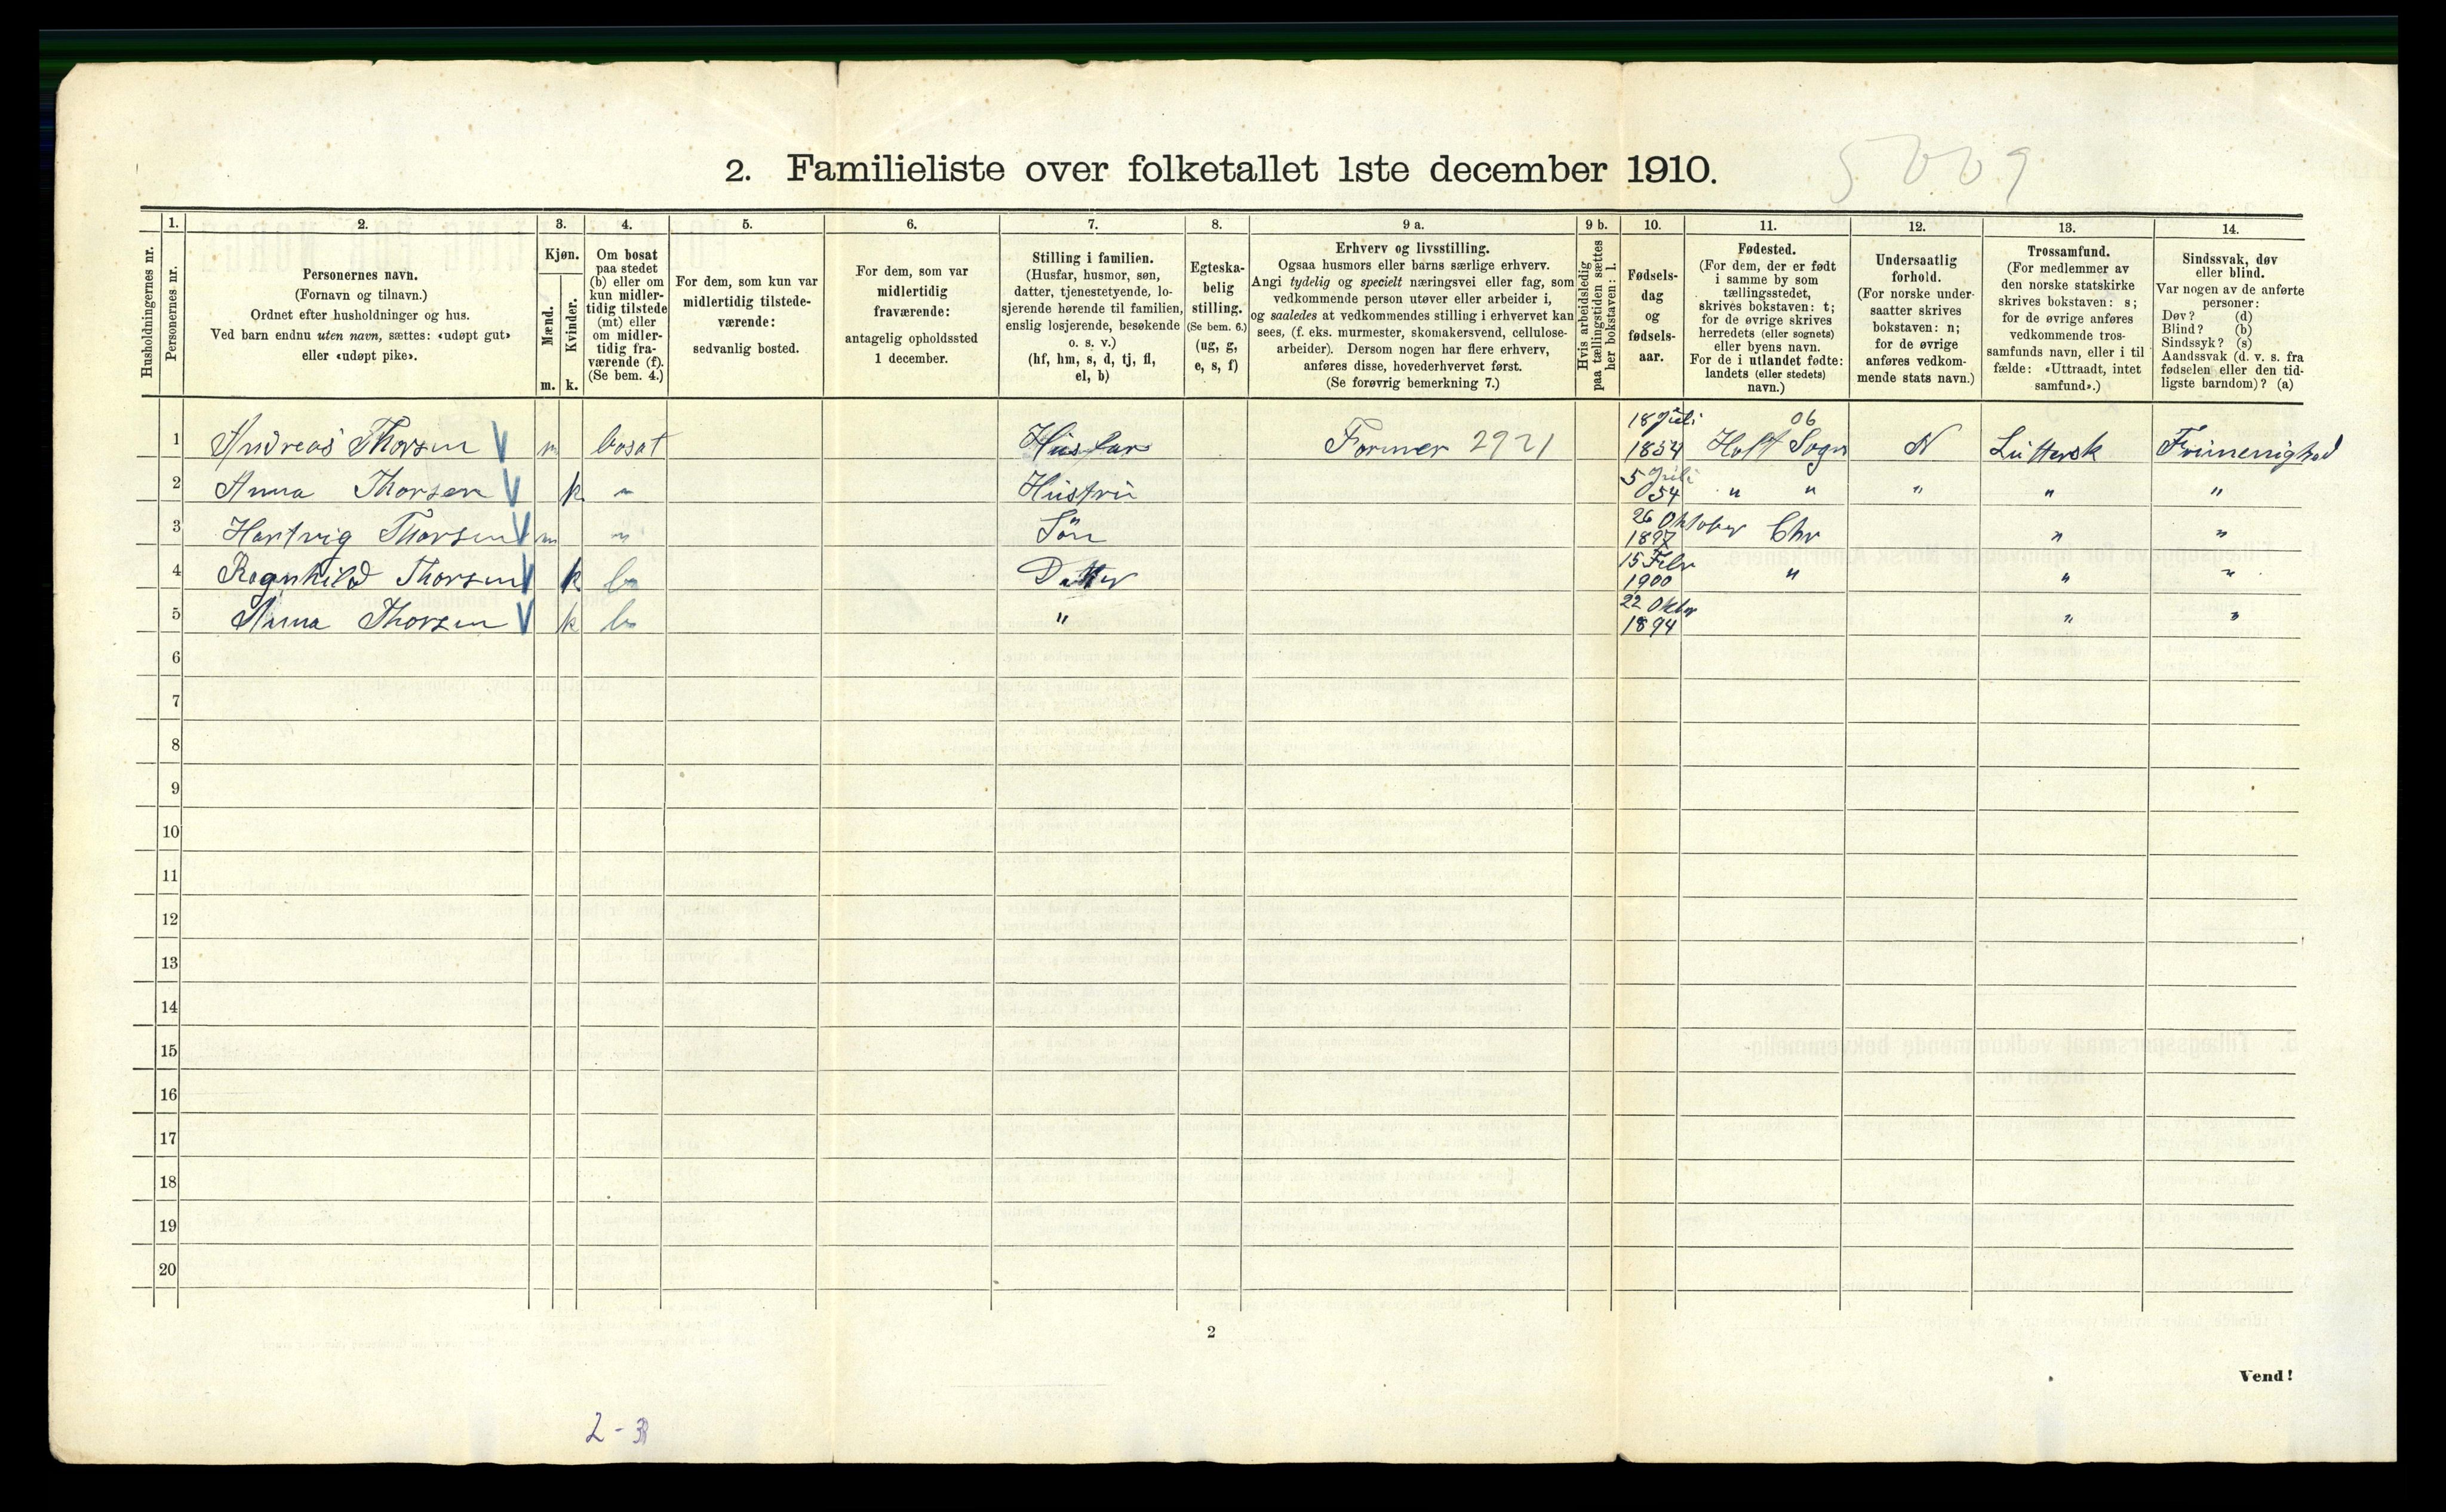 2. Familieliste over folketallet 1ste december 1910.
5009
Husholdningernes nr.
1.
Personernes nr.
2.
Personernes navn.
(Fornavn og tilnavn.)
Ordnet efter husholdninger og hus.
Ved barn endnu uten navn, sættes: «udøpt gut»
eller «udøpt pike».
3.
Kjøn.
Mænd.
m.
Kvinder.
k.
4.
Om bosat
paa stedet
(b) eller om
kun midler-
tidig tilstede
(mt) eller
om midler-
tidig fra-
værende (f).
(Se bem. 4.)
5.
For dem, som kun var
midlertidig tilstede-
værende:
sedvanlig bosted.
6.
For dem, som var
midlertidig
fraværende:
antagelig opholdssted
1 december.
7.
Stilling i familien.
(Husfar, husmor, søn,
datter, tjenestetyende, lo-
sjerende hørende til familien,
enslig losjerende, besøkende
o. s. v.)
(hf, hm, s, d, tj, fl,
el, b)
8.
Egteska-
belig
stilling.
(Se bem. 6.)
(ug, g,
e, s, f)
9 a.
Erhverv og livsstilling.
Ogsaa husmors eller barns særlige erhverv.
Angi tydelig og specielt næringsvei eller fag, som
vedkommende person utøver eller arbeider i,
og saaledes at vedkommendes stilling i erhvervet kan
sees, (f. eks. murmester, skomakersvend, cellulose-
arbeider). Dersom nogen har flere erhverv,
anføres disse, hovederhvervet først.
(Se forøvrig bemerkning 7.)
9 b.
Hvis arbeidsledig
paa tællingstiden sættes
her bokstaven: l.
10.
Fødsels-
dag
og
fødsels-
aar.
11.
Fødested.
(For dem, der er født
i samme by som
tællingsstedet,
skrives bokstaven: t;
for de øvrige skrives
herredets (eller sognets)
eller byens navn.
For de i utlandet fødte:
landets (eller stedets)
navn.)
12.
Undersaatlig
forhold.
(For norske under-
saatter skrives
bokstaven: n;
for de øvrige
anføres vedkom-
mende stats navn.)
13.
Trossamfund.
(For medlemmer av
den norske statskirke
skrives bokstaven: s;
for de øvrige anføres
vedkommende tros-
samfunds navn, eller i til
fælde: «Uttraadt, intet
samfund».)
14.
Sindssvak, døv
eller blind.
Var nogen av de anførte
personer:
Døv? (d)
Blind? (b)
Sindssyk? (s)
Aandssvak (d. v. s. fra
fødselen eller den tid-
ligste barndom)? (a)
1 Andreas Thorsen V m bosat Husfar Former 2921 18 Juli 1854 Holt Sogn 06 N Luttersk Frimenighed
2 Anna Thorsen V k " Hustru 5 Juli 54 " " " " "
3 Hartvig Thorsen V m " Sön 26 Oktober 1897 Chr " "
4 Ragnhild Thorsen V k b Datter 15 Febr 1900 " " "
5 Anna Thorsen V k b " 22 Oktbr 1894 " "
6
7
8
9
10
11
12
13
14
15
16
17
18
19
20
2
Vend!
2-3